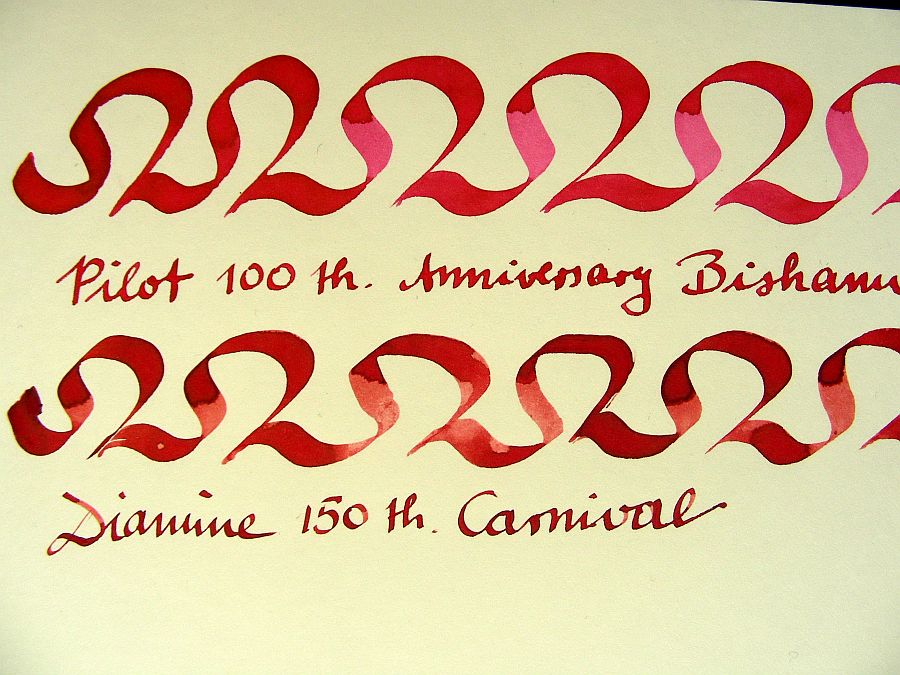 Pilot 100 th. Anniversary Bisham
Diamine 150 th. Carnival